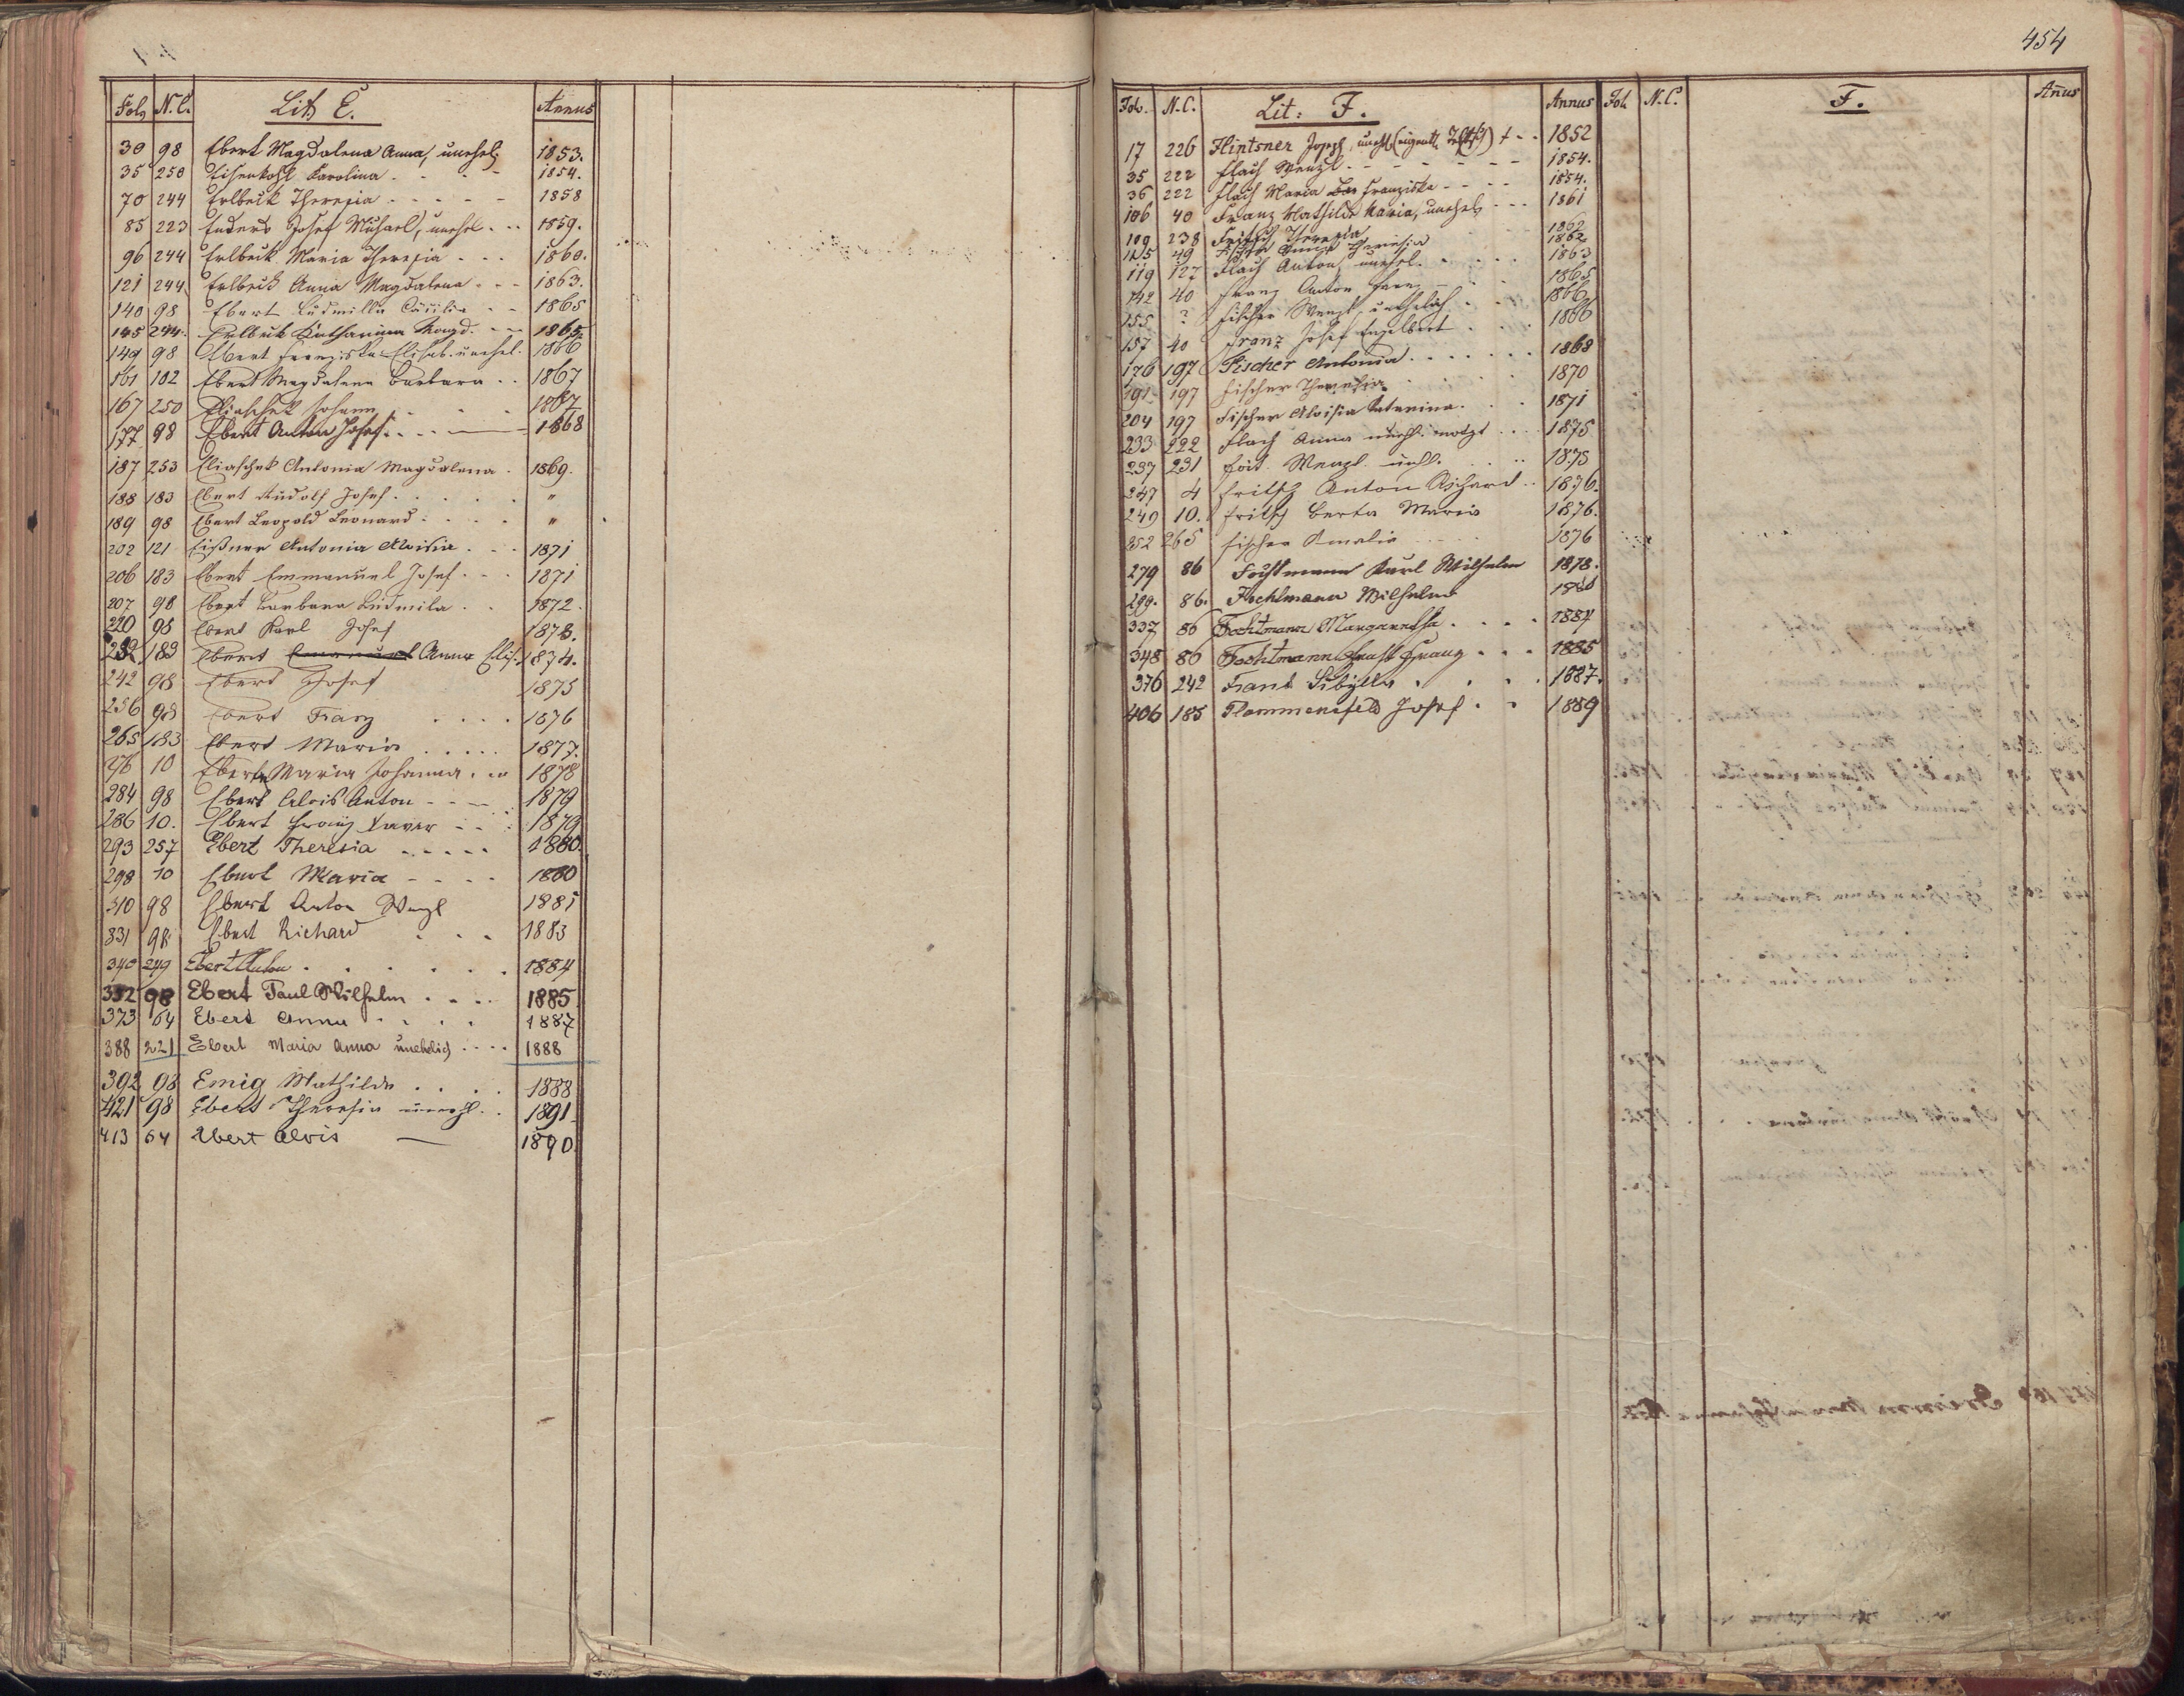 Fol. N.C. Lit. E. Annus
30 98 Ebert Magdalena Anna, unehel. 1853.
35 250 Eisenkohl Karolina 1854.
70 244 Erlbeck Theresia 1858
85 223 Enders Josef Michael, unehel. 1859.
96 244 Erlbeck Maria Theresia 1860.
121 244 Erlbeck Anna Magdalena 1863.
140 98 Ebert Ludmilla Cäcilia 1865
145 244. Erlbeck Katharina Magd. 1865.
149 98 Ebert Franziska Elisab. unehel. 1866
161 102 Ebert Magdalena Barbara 1867
167 250 Eliaschek Johann 1867
177 98 Ebert Anton Josef 1868
187 253 Eliaschek Antonia Magdalena 1869.
188 183 Ebert Rudolf Josef "
189 98 Ebert Leopold Leonard "
202 121 Eißner Antonia Aloisia 1871
206 183 Ebert Emmanuel Josef 1871
207 98 Ebert Barbara Ludmila 1872.
220 98 Ebert Karl Josef 1873.
232 183 Ebert Emanuel Anna Elis. 1874.
242 98 Ebert Josef 1875
256 98 Ebert Franz 1876
265 183 Ebert Maria 1877.
276 10 Ebert Maria Johanna 1878
284 98 Ebert Alois Anton 1879
286 10. Ebert Franz Xaver 1879
293 257 Ebert Theresia 1880.
298 10 Ebert Maria 1880
310 98 Ebert Anton Wenzl 1881
331 98 Ebert Richard 1883
340 249 Ebert Anton 1884
352 98 Ebert Paul Wilhelm 1885
373 64 Ebert Anna 1887
388 221 Ebert Maria Anna unehelich 1888
392 98 Emig Mathilde 1888
421 98 Ebert Theresia unehl. 1891
413 64 Ebert Alois 1890.
454
Fol. N.C. Lit: F. Annus Fol. N.C. F. Añus
17 226 Flintsner Joseph, unehl. 1852
35 222 Flach Wenzl 1854.
36 222 Flach Maria Franziska 1854.
106 40 Franz Mathilde Maria, unehel. 1861
109 238 Fritsch Theresia 1862
115 49 Anna Theresia 1862
119 127 Flach Anton, unehel. 1863
142 40 Franz Anton Franz 1865
155 ? Fischer Wenzl, unehelich 1866
157 40 Franz Josef Engelbert 1866
176 197 Fischer Antonia 1868
191 197 Fischer Theresia 1870
204 197 Fischer Aloisia Katerina. 1871
233 222 Flach Anna unehl. 1875
237 231 Foit Wenzl unehl. 1875
247 4 Fritsch Anton Richard 1876.
249 10. Fritsch Berta Maria 1876.
252 265 Fischer Amalia 1876
279 86 Fochtmann Karl Wilhelm 1878.
299. 86. Fochtmann Wilhelm 1880
337 86 Fochtmann Margaretha 1884
348 86 Fochtmann Ernst Franz 1885
376 242 Frank Sibylla 1887.
406 185 Flammensfeld Josef 1889